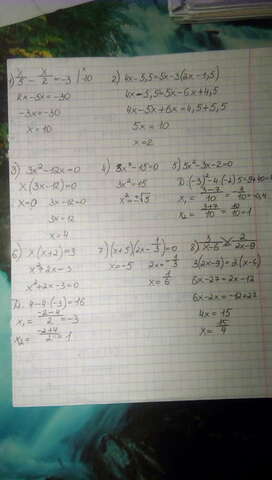 1) x/5 - x/2 = -3 | ·10
2x - 5x = -30
-3x = -30
x = 10
2) 4x - 5,5 = 5x - 3(2x - 1,5)
4x - 5,5 = 5x - 6x + 4,5
4x - 5x + 6x = 4,5 + 5,5
5x = 10
x = 2
3) 3x² - 12x = 0
x(3x - 12) = 0
x = 0 3x - 12 = 0
3x = 12
x = 4
4) 3x² - 15 = 0
3x² = 15
x² = ±√5
5) 5x² - 3x - 2 = 0
x₂ = (3+7)/10 = 10/10 = 1
6) x(x+2) = 3
x² + 2x = 3
x² + 2x - 3 = 0
D: 4 - 4·(-3) = 16
x₁ = (-2-4)/2 = -3
x₂ = (-2+4)/2 = 1
7) (x+5)(2x - 1/3) = 0
x = -5 2x = 1/3
x = 1/6
8) 3/(x-6) = 2/(2x-9)
3(2x-9) = 2(x-6)
6x - 27 = 2x - 12
6x - 2x = -12 + 27
4x = 15
x = 15/4